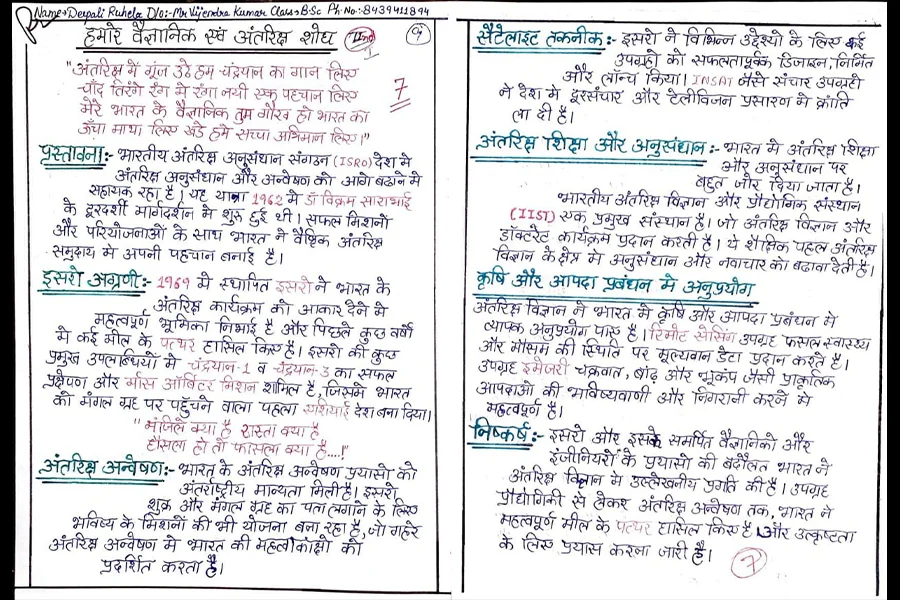 Name→Deepali Ruhela D/o:-Mr.Vijendra Kumar Class→B.Sc Ph.No:-8439411894
हमारे वैज्ञानिक एवं अंतरिक्ष शोध
"अंतरिक्ष में गूंज उठे हम चंद्रयान का गान लिए
चाँद तिरंगे रंग में रंगा नयी एक पहचान लिए
मेरे भारत के वैज्ञानिक तुम गौरव हो भारत का
ऊँचा माथा लिए खड़े हमे सच्चा अभिमान लिए।"
7
प्रस्तावना:- भारतीय अंतरिक्ष अनुसंधान संगठन (ISRO) देश मे
अंतरिक्ष अनुसंधान और अन्वेषण को आगे बढाने मे
सहायक रहा है। यह यात्रा 1962 मे डॉ विक्रम साराभाई
के दूरदर्शी मार्गदर्शन मे शुरू हुई थी। सफल मिशनों
और परियोजनाओं के साथ भारत ने वैश्विक अंतरिक्ष
समुदाय मे अपनी पहचान बनाई है।
इसरो अग्रणी:- 1969 मे स्थापित इसरो ने भारत के
अंतरिक्ष कार्यक्रम को आकार देने मे
महत्वपूर्ण भूमिका निभाई है और पिछले कुछ वर्षों
मे कई मील के पत्थर हासिल किए है। इसरो की कुछ
प्रमुख उपलब्धियों मे चंद्रयान-1 व चंद्रयान-3 का सफल
प्रक्षेपण और मार्स ऑर्बिटर मिशन शामिल है, जिसमे भारत
को मंगल ग्रह पर पहुँचने वाला पहला एशियाई देश बना दिया।
"मंजिले क्या है रास्ता क्या है
हौसला हो तो फासला क्या है....!"
अंतरिक्ष अन्वेषण:- भारत के अंतरिक्ष अन्वेषण प्रयासो को
अंतर्राष्ट्रीय मान्यता मिली है। इसरो
शुक्र और मंगल ग्रह का पता लगाने के लिए
भविष्य के मिशनों की भी योजना बना रहा है, जो गहरे
अंतरिक्ष अन्वेषण मे भारत की महत्वाकांक्षो को
प्रदर्शित करता है।
सैटेलाइट तकनीक:- इसरो ने विभिन्न उद्देश्यो के लिए कई
उपग्रहों को सफलतापूर्वक डिजाइन, निर्मित
और लॉन्च किया। INSAT जैसे संचार उपग्रहों
ने देश मे दूरसंचार और टेलीविजन प्रसारण मे क्रांति
ला दी है।
अंतरिक्ष शिक्षा और अनुसंधान:- भारत मे अंतरिक्ष शिक्षा
और अनुसंधान पर
बहुत जोर दिया जाता है।
भारतीय अंतरिक्ष विज्ञान और प्रौद्योगिक संस्थान
(IIST) एक प्रमुख संस्थान है। जो अंतरिक्ष विज्ञान और
डॉक्टरेट कार्यक्रम प्रदान करती है। ये शैक्षिक पहल अंतरिक्ष
विज्ञान के क्षेत्र मे अनुसंधान और नवाचार को बढावा देती है।
कृषि और आपदा प्रबंधन मे अनुप्रयोग
अंतरिक्ष विज्ञान ने भारत मे कृषि और आपदा प्रबंधन मे
व्यापक अनुप्रयोग पाए है। रिमोट सेंसिंग उपग्रह फसल स्वास्थ्य
और मौसम की स्थिति पर मूल्यवान डेटा प्रदान करते है।
उपग्रह इमेजरी चक्रवात, बाढ़ और भूकंप जैसी प्राकृतिक
आपदाओं की भविष्यवाणी और निगरानी करने मे
महत्वपूर्ण है।
निष्कर्ष:- इसरो और इसके समर्पित वैज्ञानिको और
इंजीनियरों के प्रयासो की बदौलत भारत ने
अंतरिक्ष विज्ञान मे उल्लेखनीय प्रगति की है। उपग्रह
प्रौद्योगिकी से लेकर अंतरिक्ष अन्वेषण तक, भारत ने
महत्वपूर्ण मील के पत्थर हासिल किए है। और उत्कृष्टता
के लिए प्रयास करना जारी है।
7